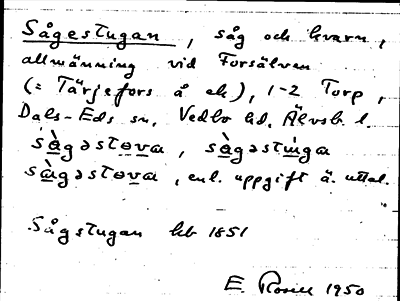 Sågestugan, såg och kvarn,
allmänning vid Forsälven
(= Tärjefors å ek), 1-2 Torp,
Dals-Eds sn, Vedbo hd, Älvsb. l.
sàgəstɵva, sàgəstuga
sàgəstɵva, enl. uppgift ä. uttal.
Sågstugan hb 1851
E. Rosell 1950